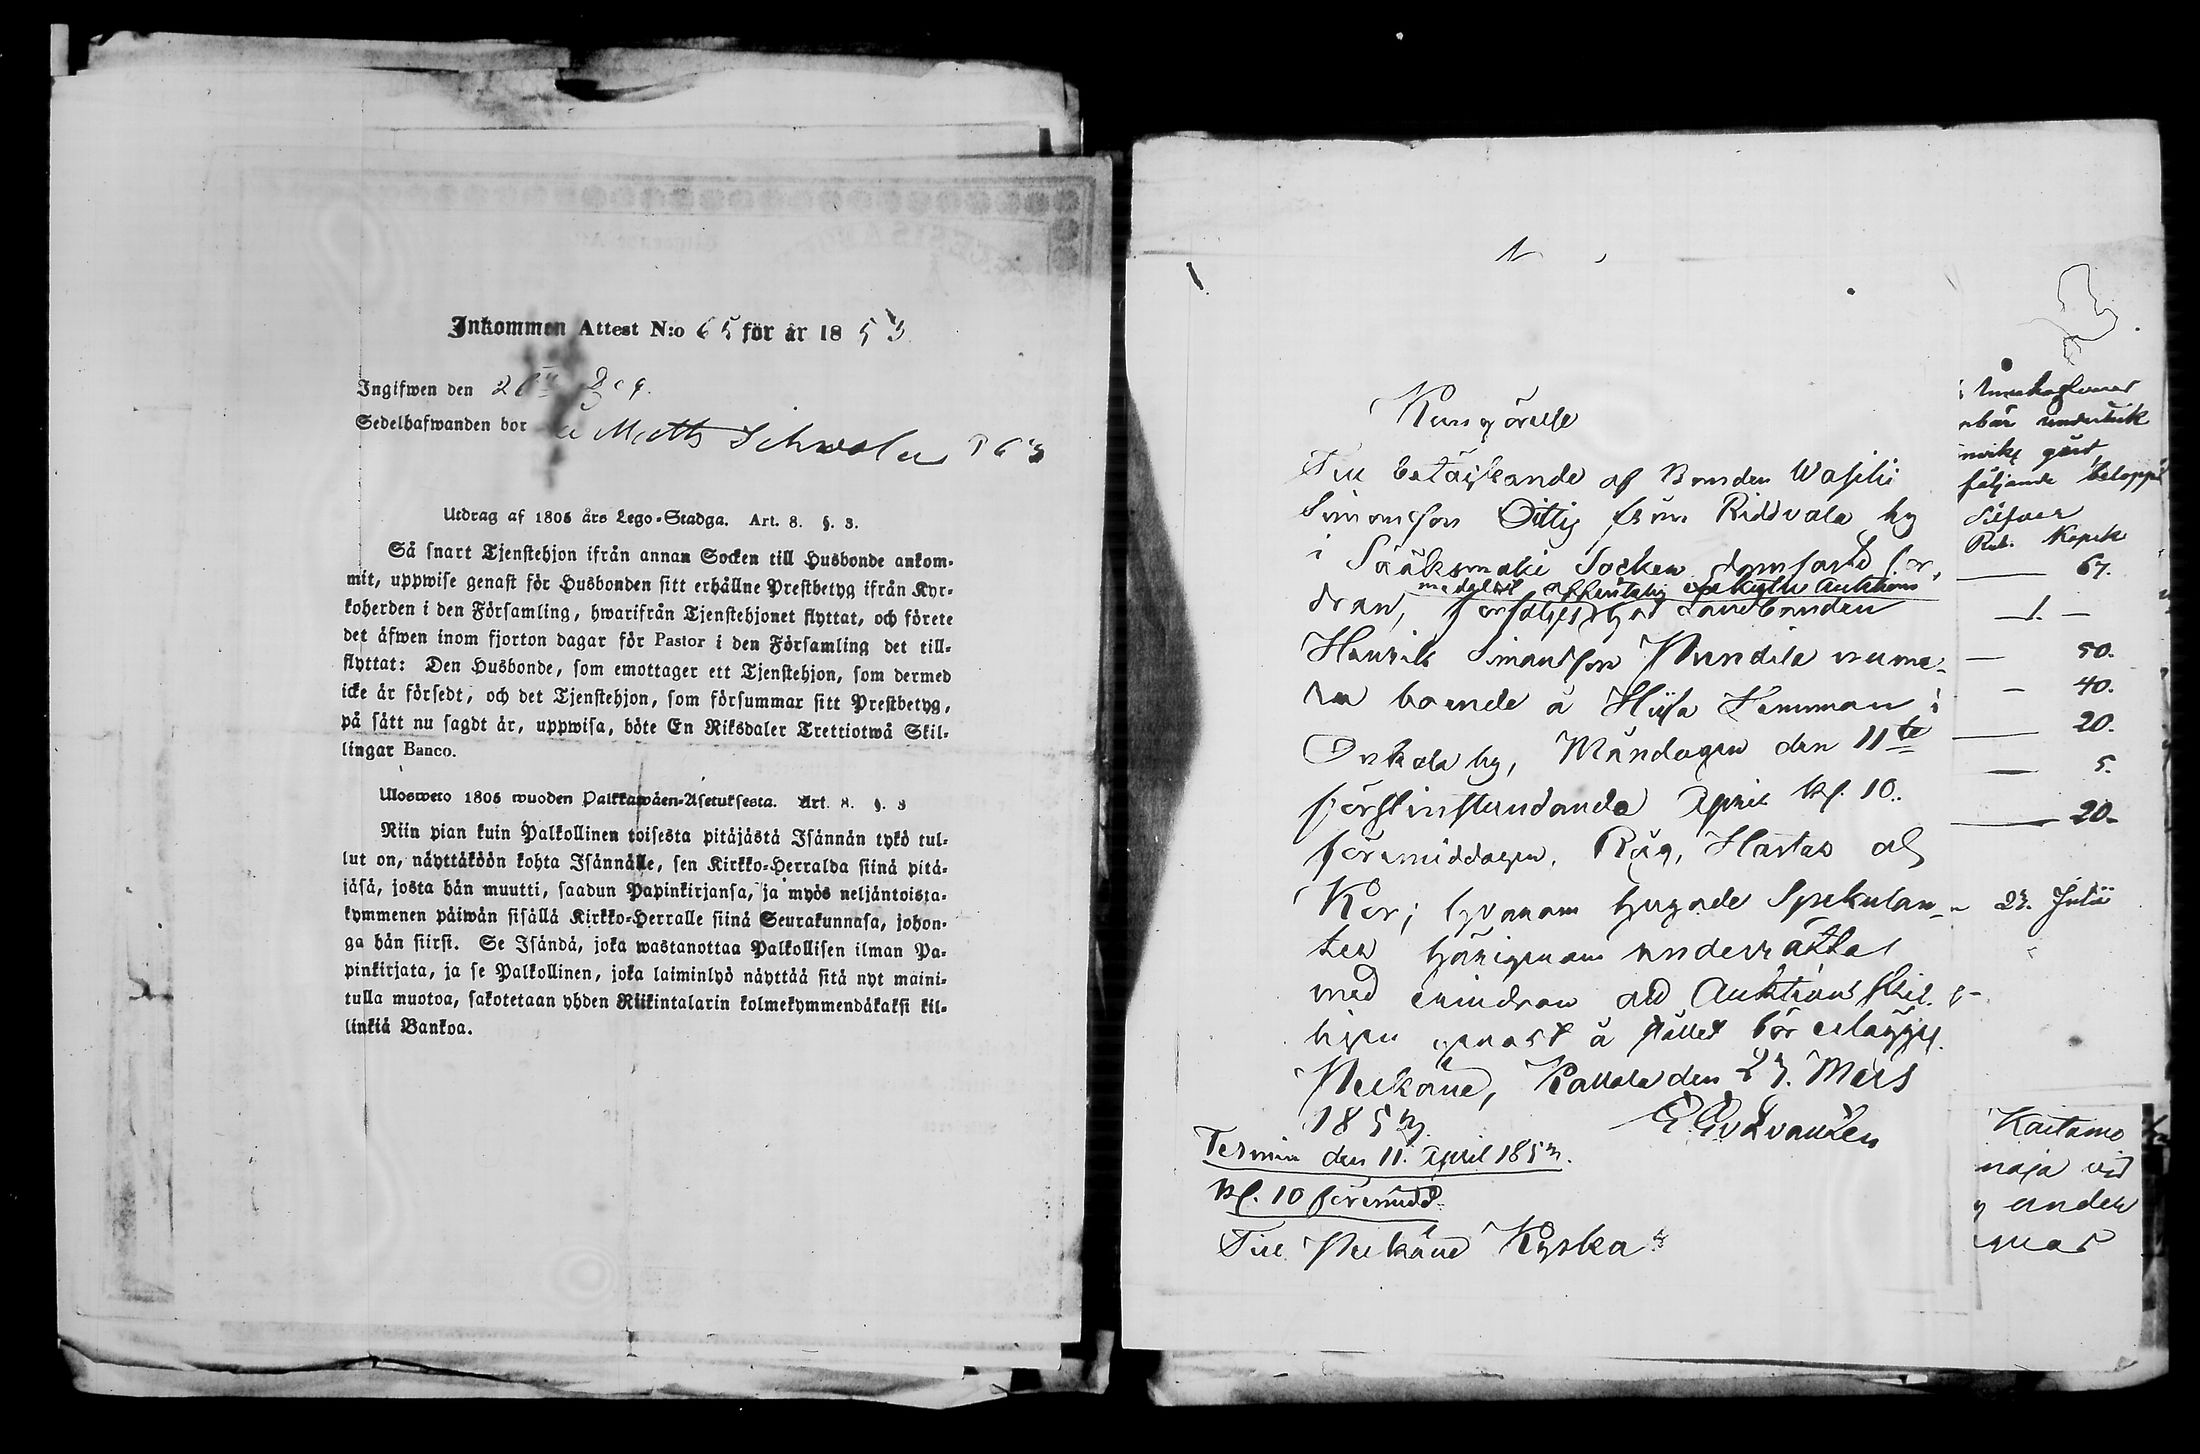 Inkommen Attest N:o 65 för år 1853
Ingifwen den
Sedelhafwanden bor Matts
Utdrag af 1805 års Lego-Stadga. Art. 8. §. 3.
Så snart Tjenstehjon ifrån annan Socken till Husbonde ankom-
mit, uppwise genast för Husbonden sitt erhållne Prestbetyg ifrån Kyr-
koherden i den Församling, hwarifrån Tjenstehjonet flyttat, och förete
det äfwen inom fjorton dagar för Pastor i den Församling det till-
flyttat: Den Husbonde, som emottager ett Tjenstehjon, som dermed
icke är försedt, och det Tjenstehjon, som försummar sitt Prestbetyg,
på sätt nu sagdt är, uppwisa, böte En Riksdaler Trettiotwå Skil-
lingar Banco.
Ulosweto 1805 wuoden Palkkawäen-Asetuksesta. Art. 8. §. 3
Niin pian kuin Palkollinen toisesta pitäjästä Isännän tykö tul-
lut on, näyttäköön kohta Isännälle, sen Kirkko-Herralda siinä pitä-
jäsä, josta hän muutti, saadun Papinkirjansa, ja myös neljäntoista-
kymmenen päiwän sisällä Kirkko-Herralle siinä Seurakunnasa, johon-
ga hän siirsi. Se Isändä, joka wastanottaa Palkollisen ilman Pa-
pinkirjata, ja se Palkollinen, joka laiminlyö näyttää sitä nyt maini-
tulla muotoa, sakotetaan yhden Riikintalarin kolmekymmendäkaksi kil-
linkiä Bankoa.
Kungörelse
Till betäckande af Bonden Wasili
Simonsson Dittig från Riddvala by
i Sääksmäki Socken domfästa for,
medelst offentelig exekutiv Auktion
dran, försäljes hos Landbonden
Henrik Simonsson nume-
ra boende å Hiisa Hemman i
Onkala by, Måndagen den 11te
förstinstundande April kl. 10.
förmiddagen, Råg, Hästar och
Kor; hvarom hugade Spekulan-
ter härigenom underrättas
med erindran att Auktions skil-
lingen genast å stället bör erläggas.
Pelkäne, Kallala den 23. Mars
1853.
Termin den 11. April 1853.
kl. 10 förmidd.
Till Pelkäne Kyrka
följande belopp
Silfver
Rub. Kopek
67.
1. —
50.
40.
20.
5.
20.
23. Julii
Kaitamo
vid
under